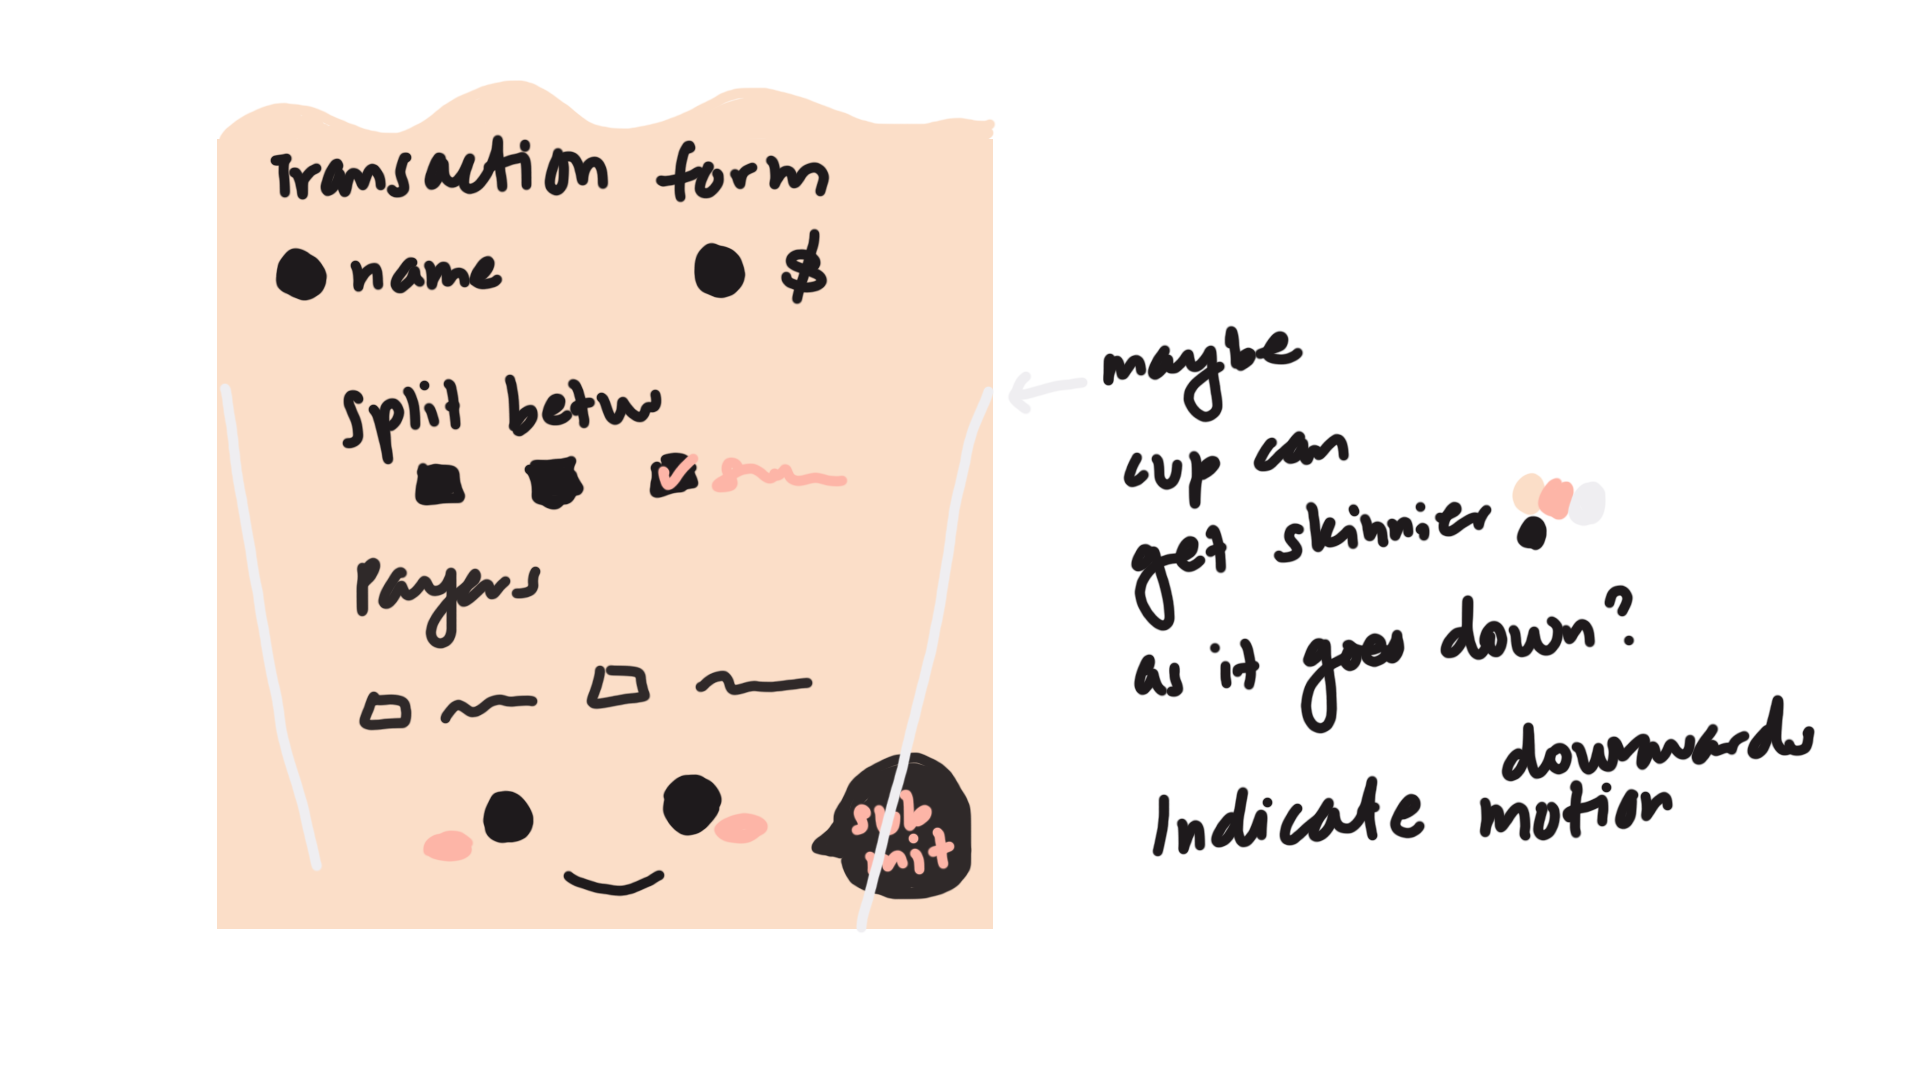 Transaction form
name $
split betw
Payers
sub
mit
maybe
cup can
get skinnier
as it goes down?
Indicate downwards
motion